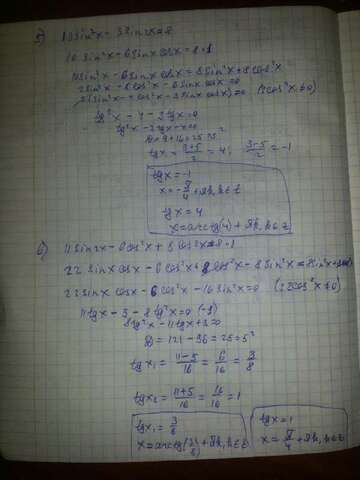 10 sin²x - 3 sin 2x = 8
10 sin²x - 6 sinx cosx = 8·1
10 sin²x - 6 sinx cosx = 8 sin²x + 8 cos²x
2 sin²x - 8 cos²x - 6 sinx cosx = 0
2(sin²x - 4 cos²x - 3 sinx cosx) = 0 (2cos²x ≠ 0)
tg²x - 4 - 3tgx = 0
tg²x - 3tgx - 4 = 0
D = 9 + 16 = 25 = 5²
tgx = (3+5)/2 = 4; (3-5)/2 = -1
tgx = -1
x = -π/4 + πk, k∈z
tgx = 4
x = arctg(4) + πk, k∈z
11 sin2x - 6 cos²x + 8 cos2x = 8·1
22 sinx cosx - 6 cos²x + 8 cos²x - 8 sin²x = 8 sin²x +
22 sinx cosx - 6 cos²x - 16 sin²x = 0 (2cos²x ≠ 0)
11 tgx - 3 - 8 tg²x = 0 (-1)
8 tg²x - 11 tgx + 3 = 0
D = 121 - 96 = 25 = 5²
tgx₁ = (11-5)/16 = 6/16 = 3/8
tgx₂ = (11+5)/16 = 16/16 = 1
tgx₁ = 3/8
x = arctg(3/8) + πk, k∈z
tgx = 1
x = π/4 + πk, k∈z